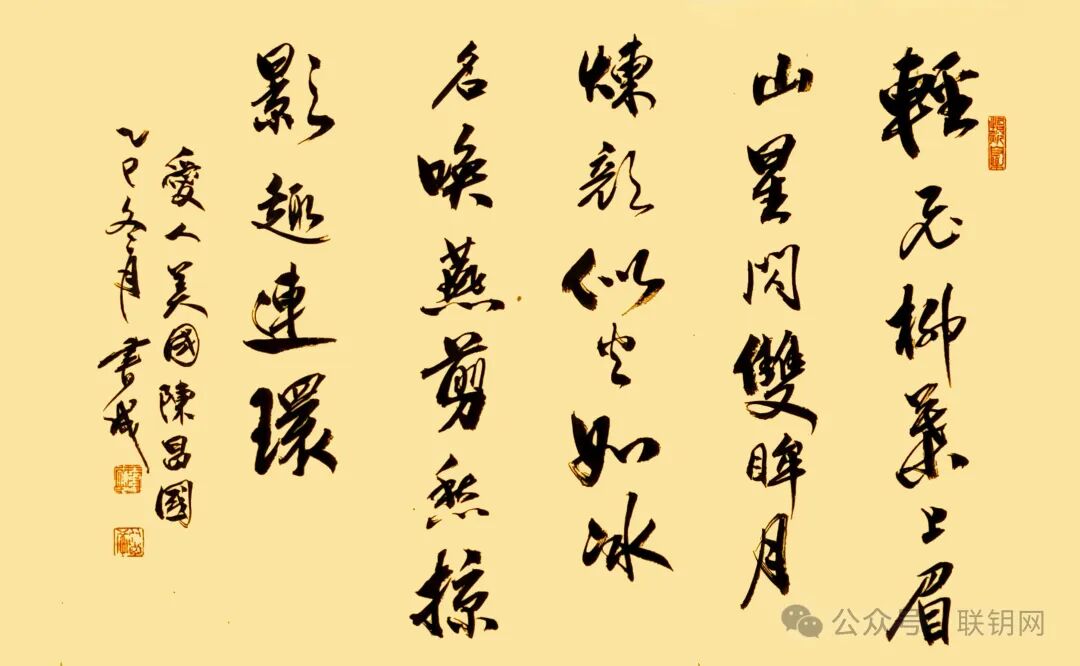 輕柳葉上眉
山星閃雙眸月
煉顏似火如冰
名喚燕剪愁掠
影趣連環
愛人美國陳昌國
乙巳冬月書成
公众号 联钥网